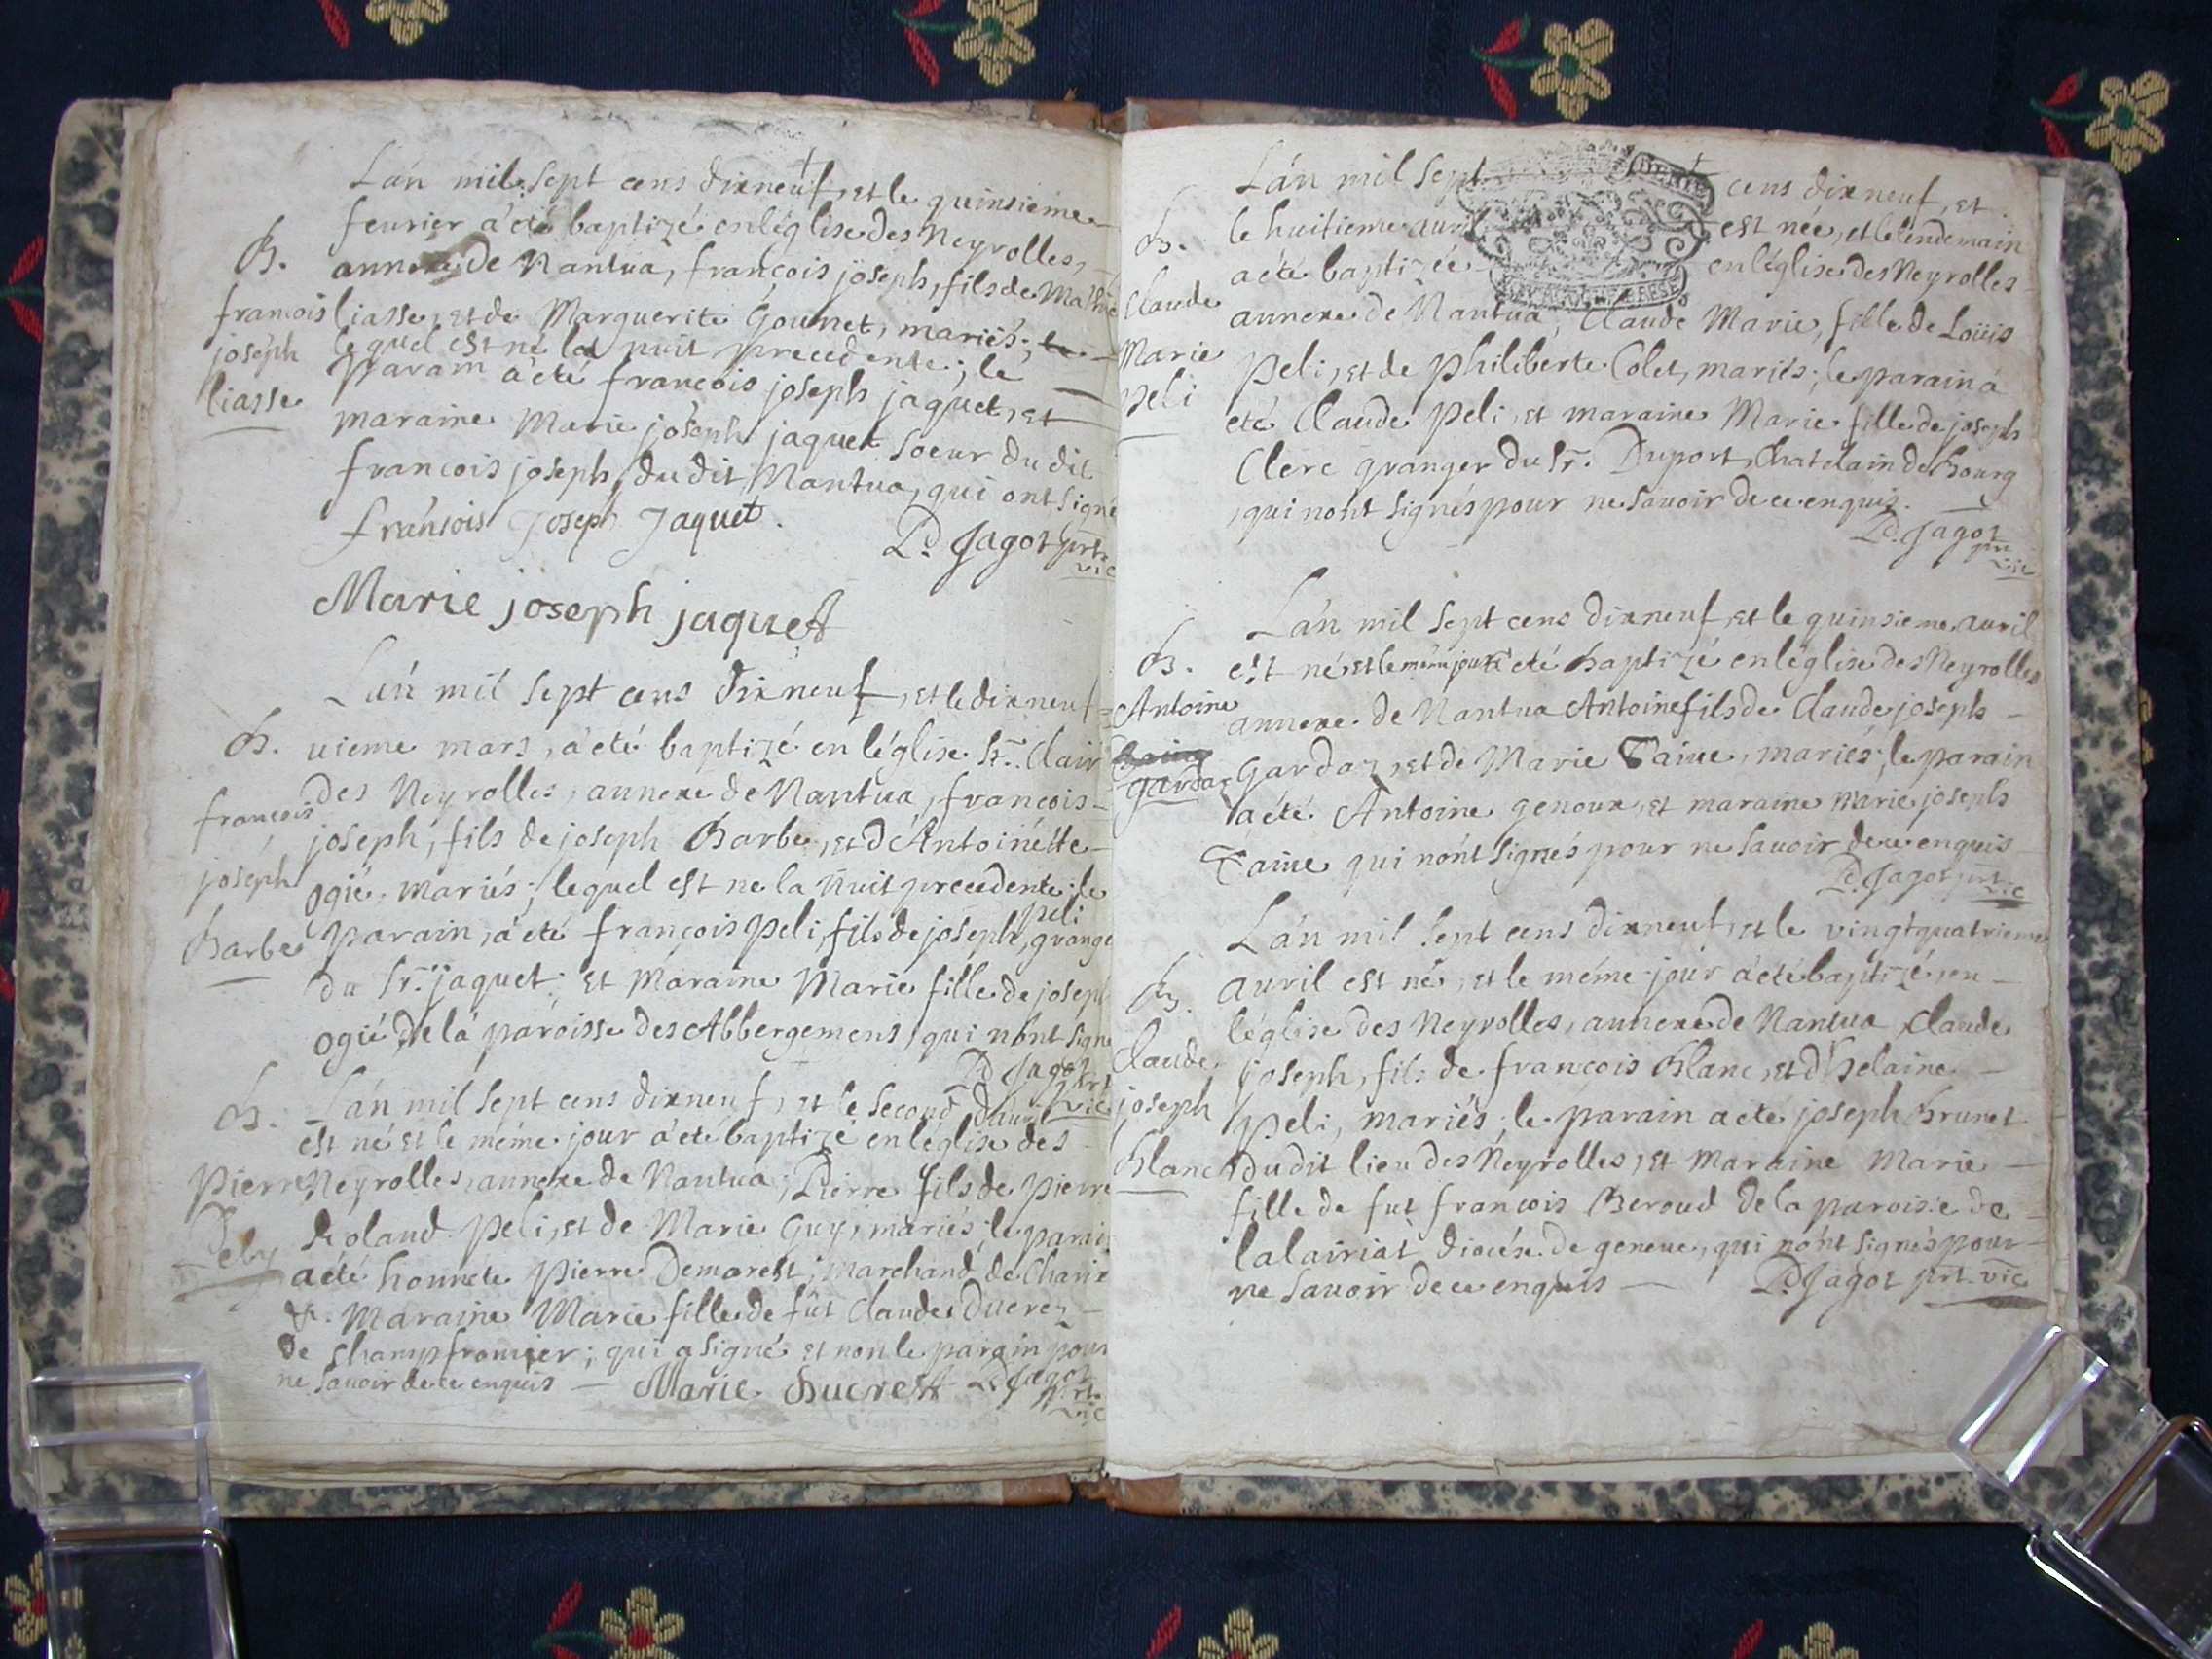 L'an mil sept cens dixneuf, et le quinsieme
feurier a été baptizé en l'église des Neyrolles,
B.
annexe de Nantua, françois joseph, fils de Mathie
francois
joseph
liasse
liasse, et de Marguerite Gounet, mariés;
lequel est né la nuit precedente; le
parain a été francois joseph jaquet, et
maraine Marie joseph jaquet soeur du dit
francois joseph, du dit Nantua, qui ont signé
fransois Joseph Jaquet.
Ld. Jagot prt. vic
Marie joseph jaquet
L'an mil sept cens dixneuf, et le dixneuf=
B.
francois
joseph
Barbe
uieme mars, a été baptizé en l'église St. Clair
des Neyrolles, annexe de Nantua, francois-
joseph, fils de joseph Barbe, et d'Antoinette
ogié, mariés; lequel est ne la nuit precedente; le
parain, a été françois peli, fils de joseph peli, grange
du Sr. jaquet; et maraine Marie fille de joseph
ogié, de la paroisse des Abbergemens, qui n'ont signé
Ld Jagot prt vic
B.
Pierre
Pely
L'an mil sept cens dixneuf, et le second d'auril
est né et le méme jour a été baptizé en l'église des
Neyrolles, annexe de Nantua; Pierre fils de pierre
Roland peli, et de Marie Guy, mariés; le parai
a été honnete Pierre Demarest, marchand de Charix
&. Maraine Marie fille de fut Claude Ducrez
de Champfromier; qui a signé et non le parain pour
ne sauoir de ce enquis — Marie Ducrest Ld Jagot prt. vic
L'an mil sept cens dixneuf, et
B.
Claude
Marie
peli
le huitieme auril est née, et le lendemain
a été baptizée en l'église des Neyrolles
annexe de Nantua, Claude Marie, fille de Loüis
peli, et de philiberte Colet, mariés; le parain a
eté Claude peli, et maraine Marie fille de joseph
Clerc granger du Sr. Duport, Chatelain de bourg
, qui n'ont signés pour ne sauoir de ce enquis.
Ld. Jagot prt vic
L'an mil sept cens dixneuf, et le quinsieme auril
B.
Antoine
gardaz
est né et le méme jour a été baptizé en l'église des Neyrolles
annexe de Nantua Antoine fils de Claude joseph —
Gardaz, et de Marie Taiue, mariés; le parain
a été Antoine genoux, et maraine Marie joseph
Taiue qui n'ont signés pour ne sauoir de ce enquis
Ld. Jagot prt. vic
L'an mil sept cens dixneuf, et le vingtquatrieme
B.
Claude
joseph
Blanc
auril est né, et le méme jour a été baptizé, en —
l'église des Neyrolles, annexe de Nantua Claude
joseph, fils de françois Blanc, et d'helaine —
peli, mariés; le parain a eté joseph Brunet
du dit lieu des Neyrolles, et Maraine Marie —
fille de fut francois Beroud de la paroisse de
lalairiat diocése de geneue, qui n'ont signés pour
ne sauoir de ce enquis — Ld. Jagot prt. vic